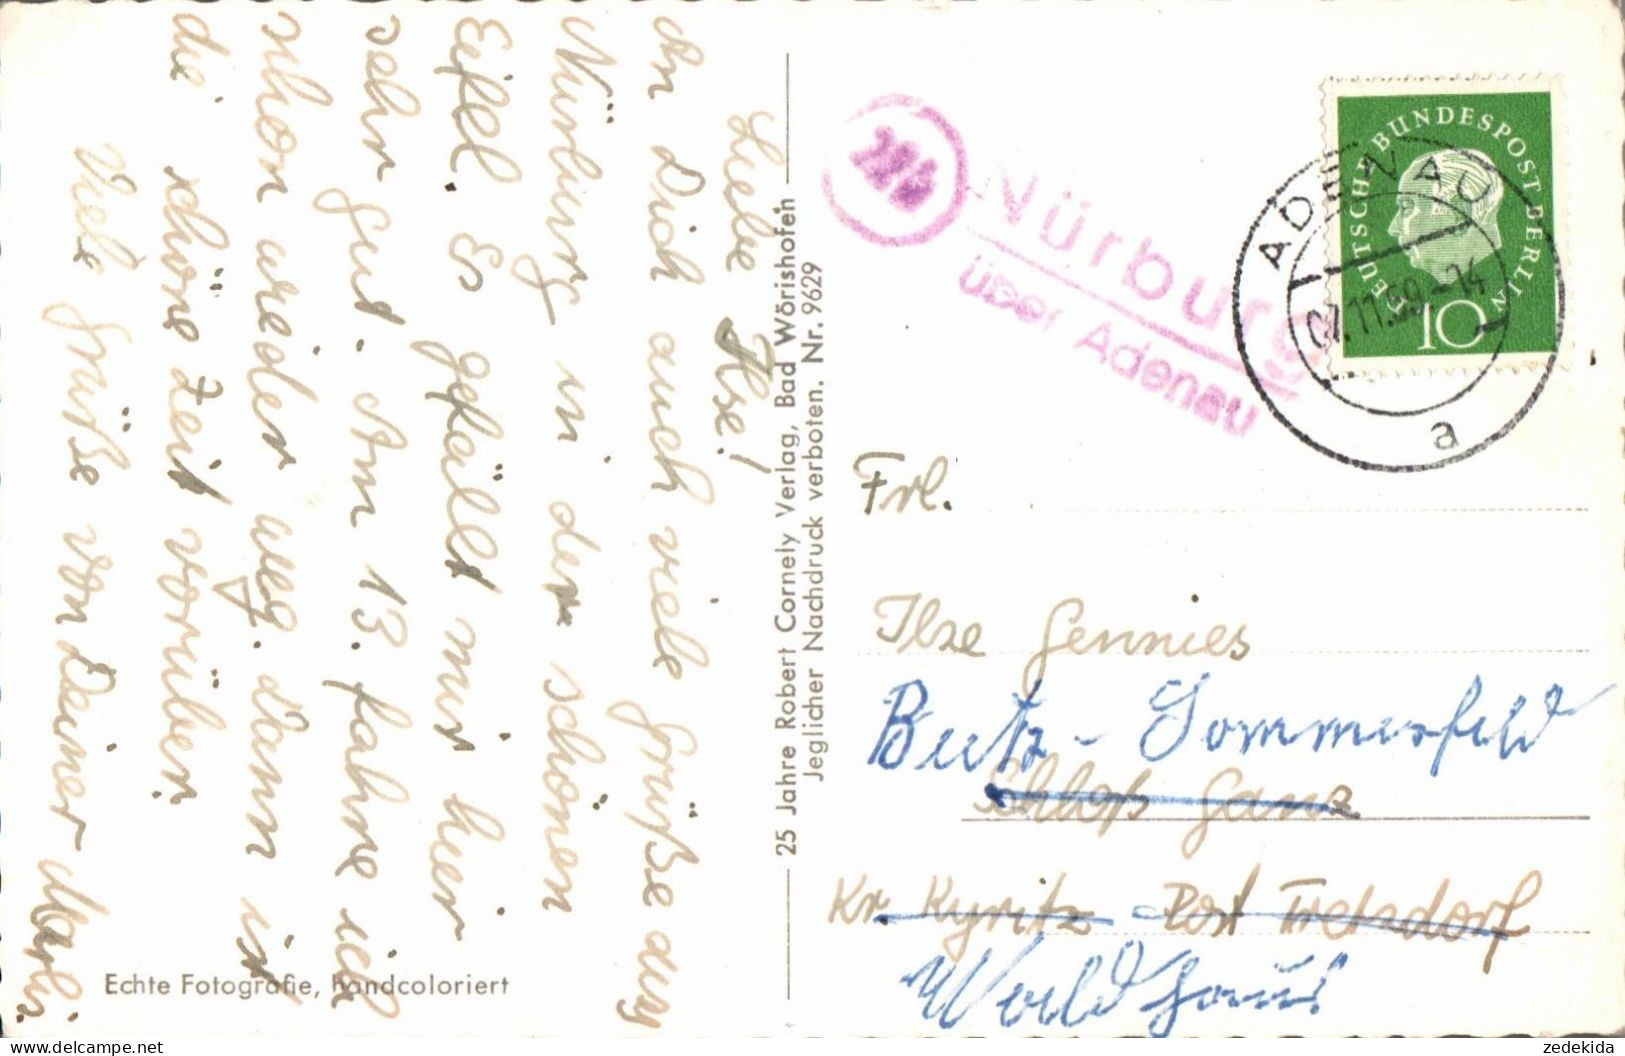 Liebe Ilse!
An Dich auch viele Grüße aus
Nürburg in der schönen
Eifel. Es gefällt mir hier
sehr gut. Am 13. fahre ich
schon wieder weg. Dann ist
die schöne Zeit vorüber.
Viele Grüße von Deiner
Echte Fotografie, handcoloriert
25 Jahre Robert Cornely Verlag, Bad Wörishofen
Jeglicher Nachdruck verboten. Nr. 9629
22b
Nürburg
über Adenau
DEUTSCHE BUNDESPOST BERLIN
10
ADENAU
07.11.59-14
a
Frl.
Ilse Gennies
Butz-Sommerfeld
Schloß Ganz
Kr. Kyritz Post
Waldhaus
zedekida